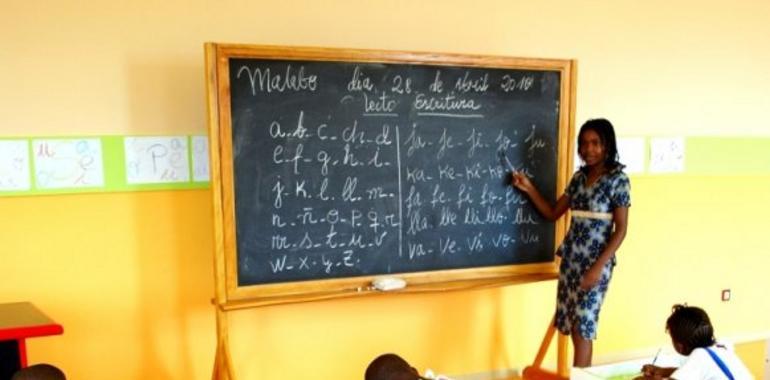 Malabo dia, 28 de Abril 2010
Lecto Escritura
a-b-c-ch-d
e-f-g-h-i-
j-k-l-ll-m-
n-ñ-o-p-q-r
rr-s-t-u-v
w-x-y-z-
ja-je-ji-jo-ju
ka-ke-ki-ko-
fa-fe-fi-fo-fu
lla-lle-lli-llo-llu
va-ve-vi-vo-vu